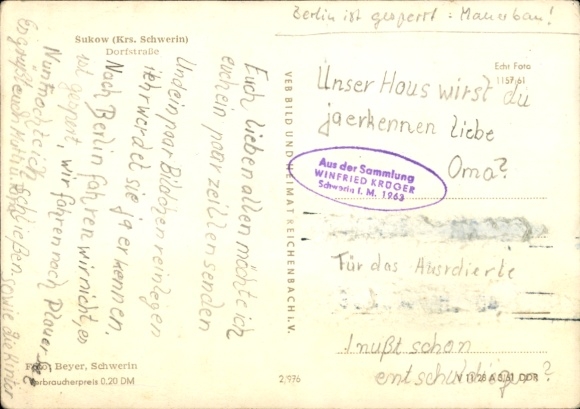 Berlin ist gesperrt : Mauerbau!
Sukow (Krs. Schwerin)
Dorfstraße
Euch lieben allen möchte ich
euch ein paar zeillen senden
Und ein paar Bildchen reinlegen
ihr werdet sie ja erkennen.
Nach Berlin fahren wir nicht, es
ist gespert, wir fahren nach Plauer See
Nun möchte ich schließen
Es grüßt euch Mutti u. sowie die Kinder
Foto: Beyer, Schwerin
Verbraucherpreis 0,20 DM
2/976
VEB BILD UND HEIMAT REICHENBACH I. V.
Echt Foto
1157 61
Unser Haus wirst du
ja erkennen liebe
Oma?
Aus der Sammlung
WINFRIED KRÜGER
Schwerin I. M. 1963
Für das Ausrdierte
Inußt schon
entschuldigen?
V 11 28 A 6/61 DDR